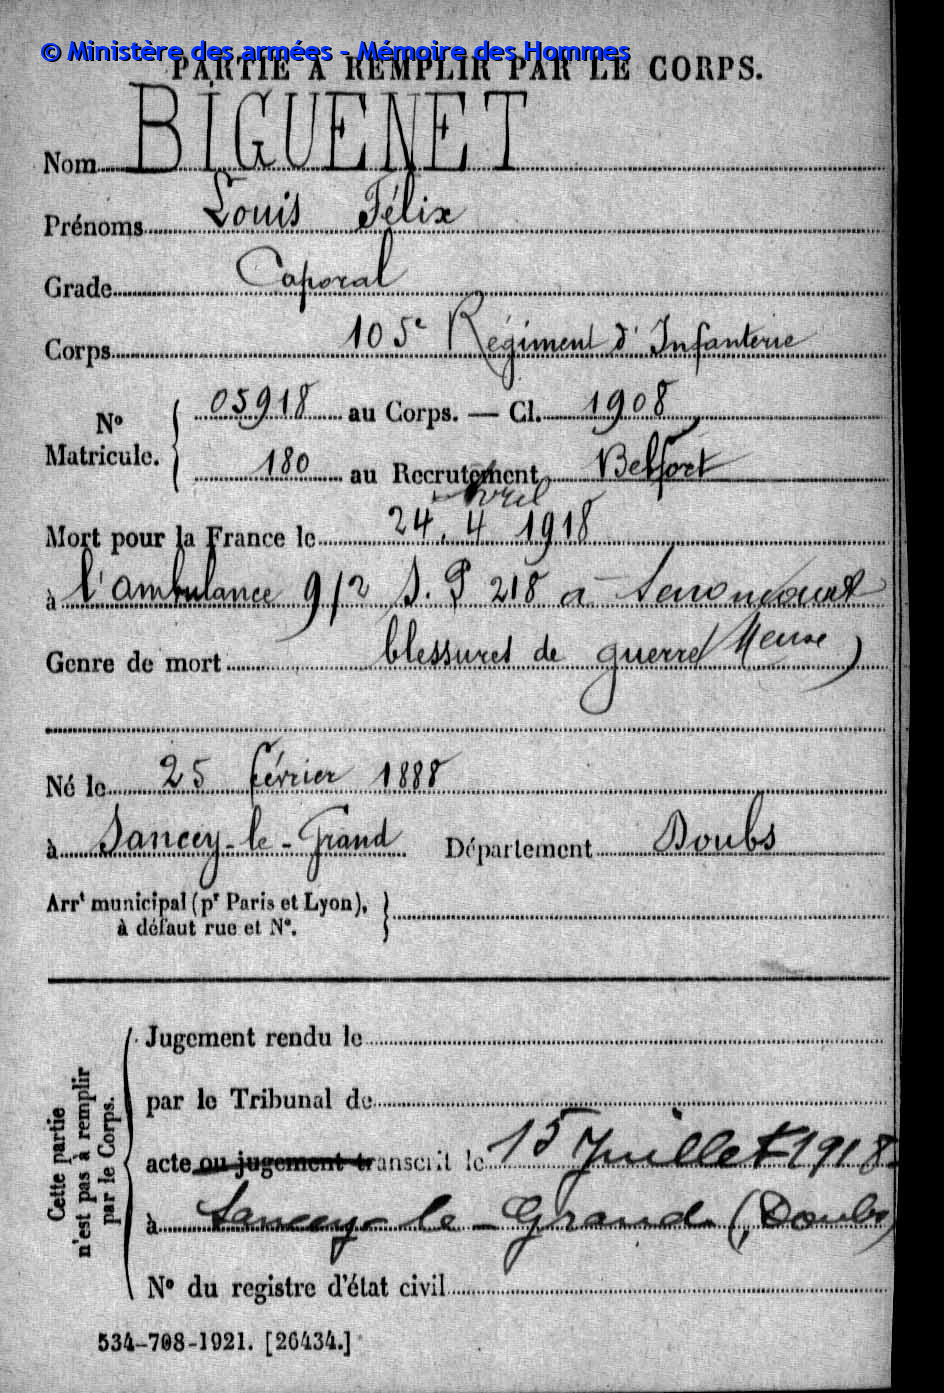 © Ministère des armées - Mémoire des Hommes
PARTIE À REMPLIR PAR LE CORPS.
Nom BIGUENET
Prénoms Louis Félix
Grade Caporal
Corps 105e Régiment d'Infanterie
No Matricule. { 05918 au Corps. — Cl. 1908
180 au Recrutement Belfort
Avril
Mort pour la France le 24. 4 1918
à l'ambulance 9/2 S. P 218 à Senoncourt
Genre de mort blessures de guerre Meuse)
Né le 25 février 1888
à Sancey-le-Grand Département Doubs
Arrt municipal (pr Paris et Lyon), }
à défaut rue et No.
Cette partie
n'est pas à remplir
par le Corps.
Jugement rendu le
par le Tribunal de
acte ou jugement transcrit le 15 Juillet 1918
à Sancey-le-Grand (Doubs)
No du registre d'état civil
534-708-1921. [26434.]